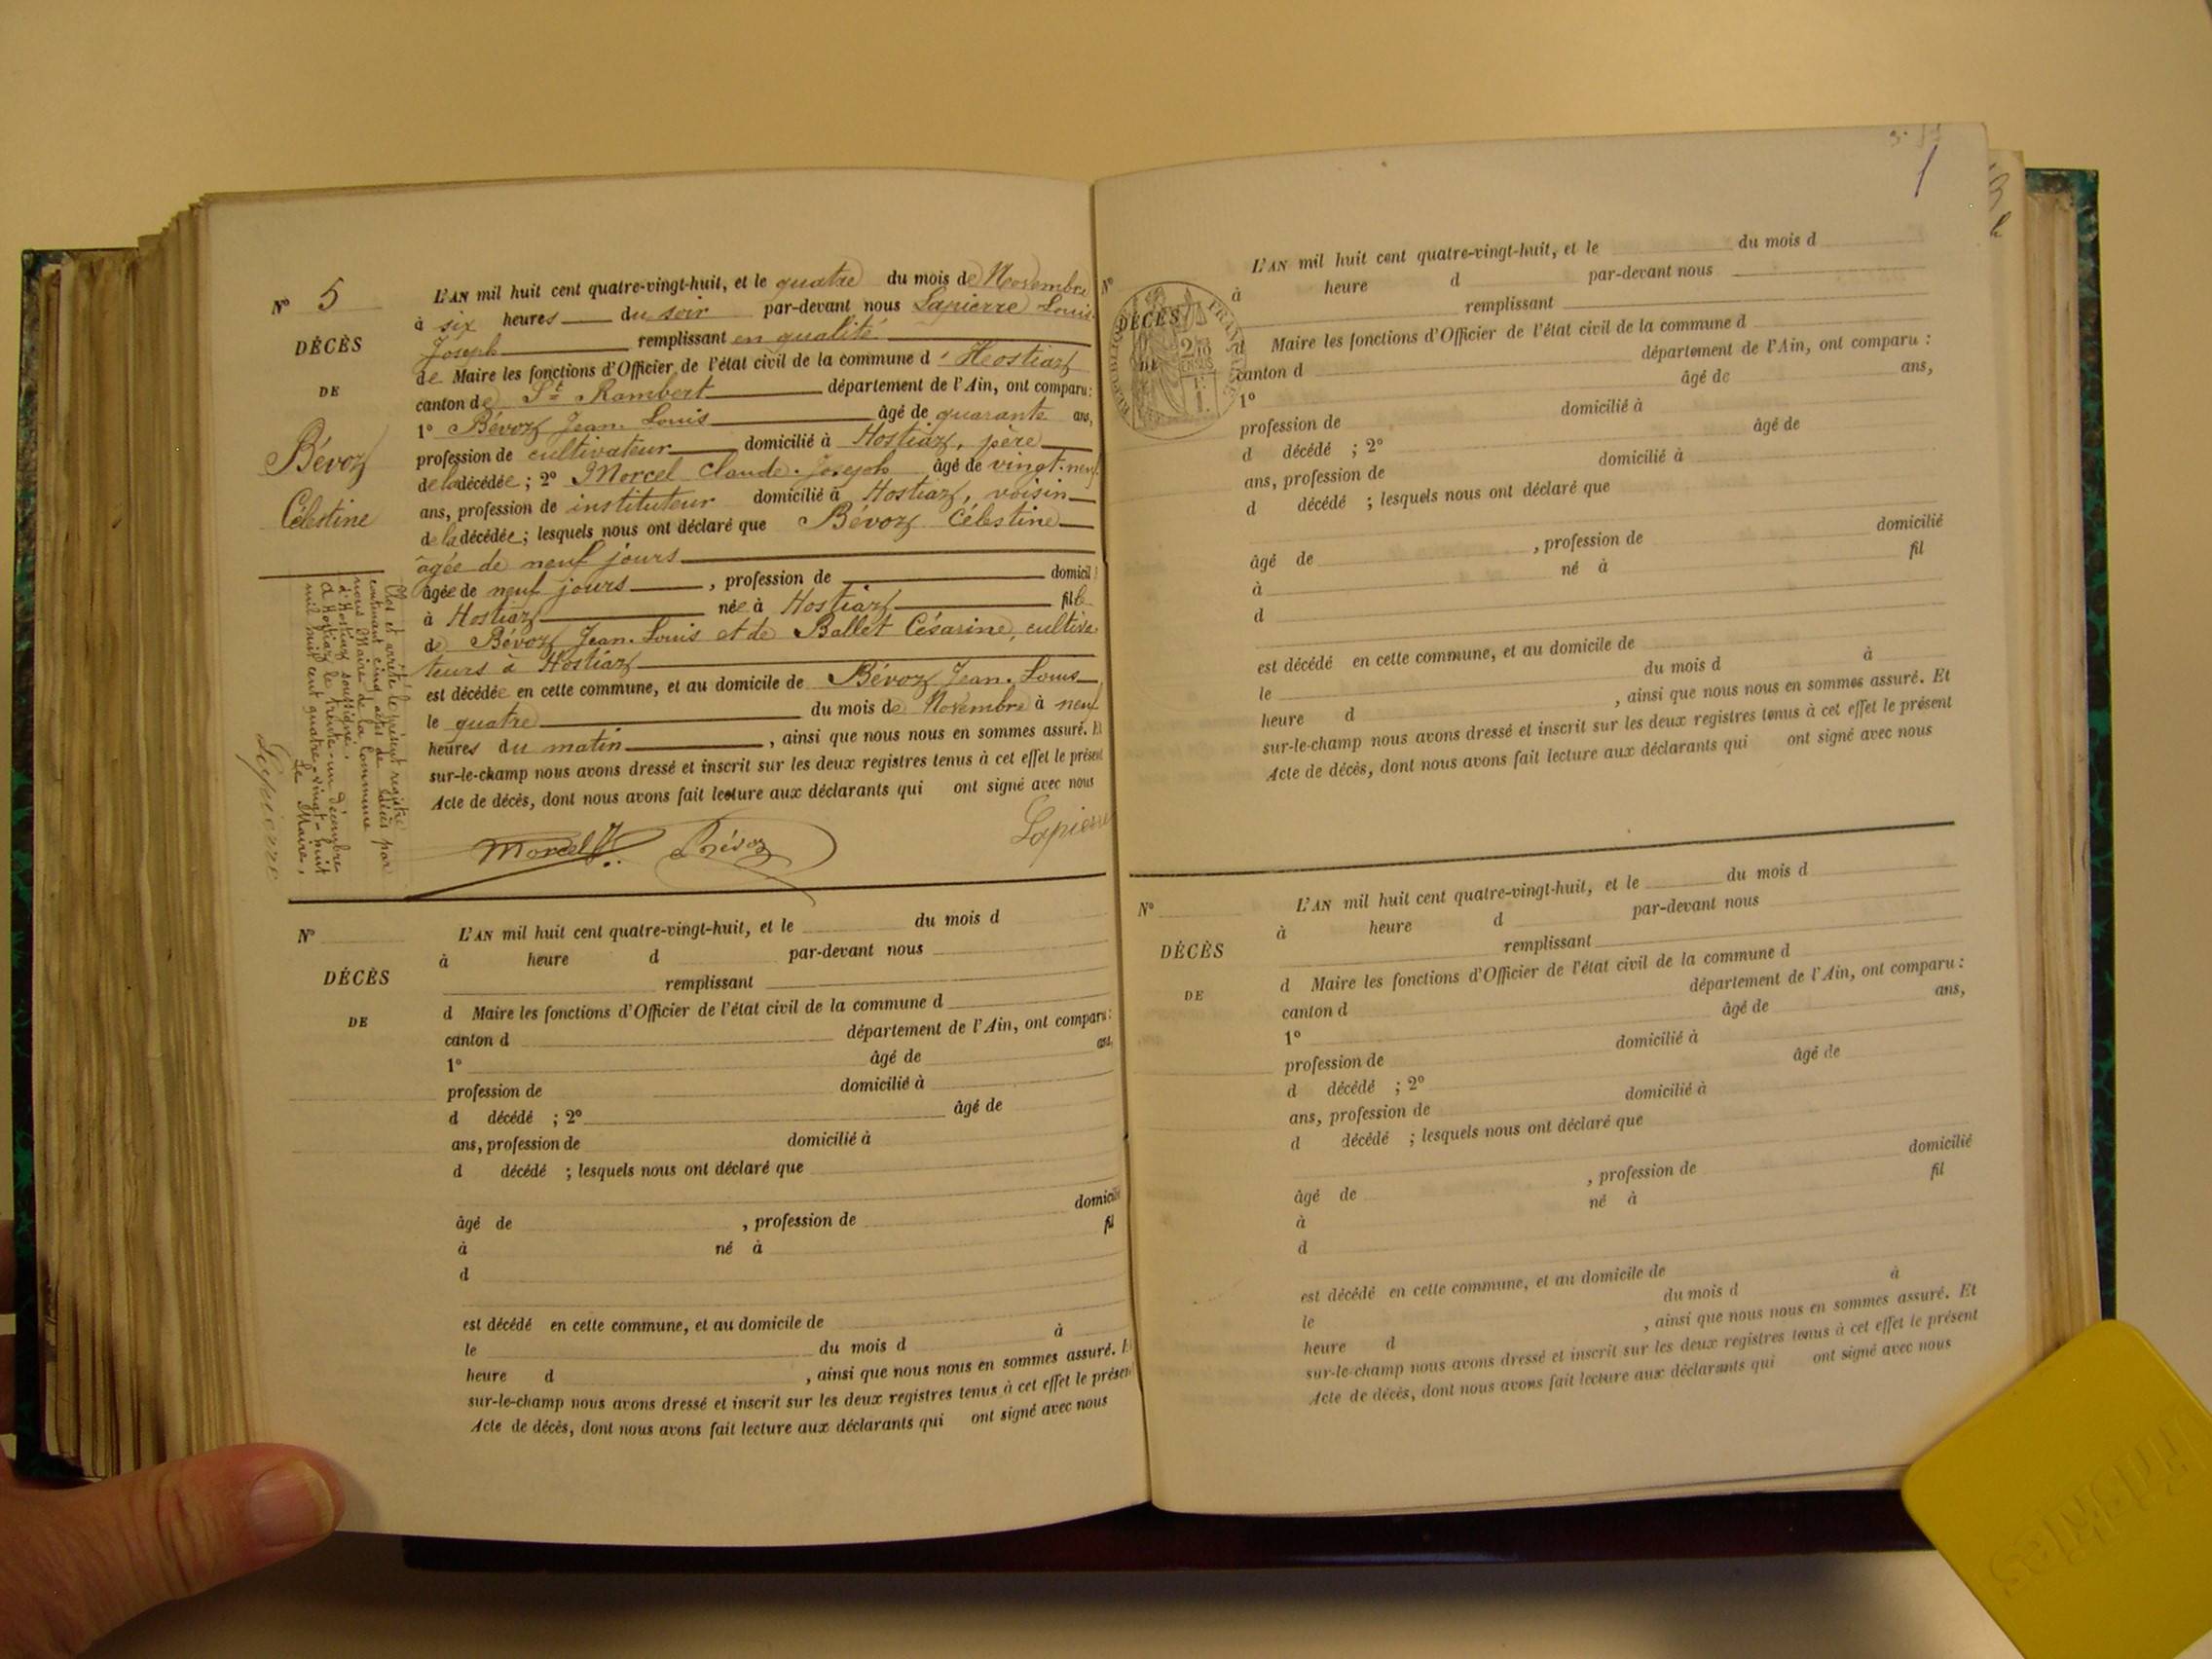 N° 5
DÉCÈS
DE
Bévoz
Célestine
L'AN mil huit cent quatre-vingt-huit, et le quatre du mois de Novembre
à six heures du soir par-devant nous Lapierre Louis
Joseph remplissant en qualité
de Maire les fonctions d'Officier de l'état civil de la commune d'Hostiaz
canton de St Rambert département de l'Ain, ont comparu :
1° Bévoz Jean-Louis âgé de quarante ans,
profession de cultivateur domicilié à Hostiaz, père
de la décédée ; 2° Morcel Claude-Joseph âgé de vingt-neuf
ans, profession de instituteur domicilié à Hostiaz, voisin
de la décédée ; lesquels nous ont déclaré que Bévoz Célestine
âgée de neuf jours
âgée de neuf jours , profession de domicil
à Hostiaz née à Hostiaz fille
de Bévoz Jean-Louis et de Ballet Césarine, cultiva-
teurs à Hostiaz
est décédée en cette commune, et au domicile de Bévoz Jean-Louis
le quatre du mois de Novembre à neuf
heures du matin , ainsi que nous nous en sommes assuré. Et
sur-le-champ nous avons dressé et inscrit sur les deux registres tenus à cet effet le présent
Acte de décès, dont nous avons fait lecture aux déclarants qui ont signé avec nous
Morcel Bévoz Lapierre
Clos et arrêté le présent registre
contenant cinq actes de décès par
nous Maire de la commune
d'Hostiaz soussigné.
A Hostiaz le trente-un décembre
mil huit cent quatre-vingt-huit
Le Maire,
Lapierre
N°
DÉCÈS
DE
L'AN mil huit cent quatre-vingt-huit, et le du mois d
à heure d par-devant nous
remplissant
d Maire les fonctions d'Officier de l'état civil de la commune d
canton d département de l'Ain, ont comparu :
1° âgé de ans,
profession de domicilié à
d décédé ; 2° âgé de
ans, profession de domicilié à
d décédé ; lesquels nous ont déclaré que
âgé de , profession de domicilié
à né à fil
d
est décédé en cette commune, et au domicile de
le du mois d à
heure d , ainsi que nous nous en sommes assuré. Et
sur-le-champ nous avons dressé et inscrit sur les deux registres tenus à cet effet le présent
Acte de décès, dont nous avons fait lecture aux déclarants qui ont signé avec nous
1
N°
DÉCÈS
L'AN mil huit cent quatre-vingt-huit, et le du mois d
à heure d par-devant nous
remplissant
d Maire les fonctions d'Officier de l'état civil de la commune d
canton d département de l'Ain, ont comparu :
1° âgé de ans,
profession de domicilié à
d décédé ; 2° âgé de
ans, profession de domicilié à
d décédé ; lesquels nous ont déclaré que
âgé de , profession de domicilié
à né à fil
d
est décédé en cette commune, et au domicile de
le du mois d à
heure d , ainsi que nous nous en sommes assuré. Et
sur-le-champ nous avons dressé et inscrit sur les deux registres tenus à cet effet le présent
Acte de décès, dont nous avons fait lecture aux déclarants qui ont signé avec nous
N°
DÉCÈS
DE
L'AN mil huit cent quatre-vingt-huit, et le du mois d
à heure d par-devant nous
remplissant
d Maire les fonctions d'Officier de l'état civil de la commune d
canton d département de l'Ain, ont comparu :
1° âgé de ans,
profession de domicilié à
d décédé ; 2° âgé de
ans, profession de domicilié à
d décédé ; lesquels nous ont déclaré que
âgé de , profession de domicilié
à né à fil
d
est décédé en cette commune, et au domicile de
le du mois d à
heure d , ainsi que nous nous en sommes assuré. Et
sur-le-champ nous avons dressé et inscrit sur les deux registres tenus à cet effet le présent
Acte de décès, dont nous avons fait lecture aux déclarants qui ont signé avec nous